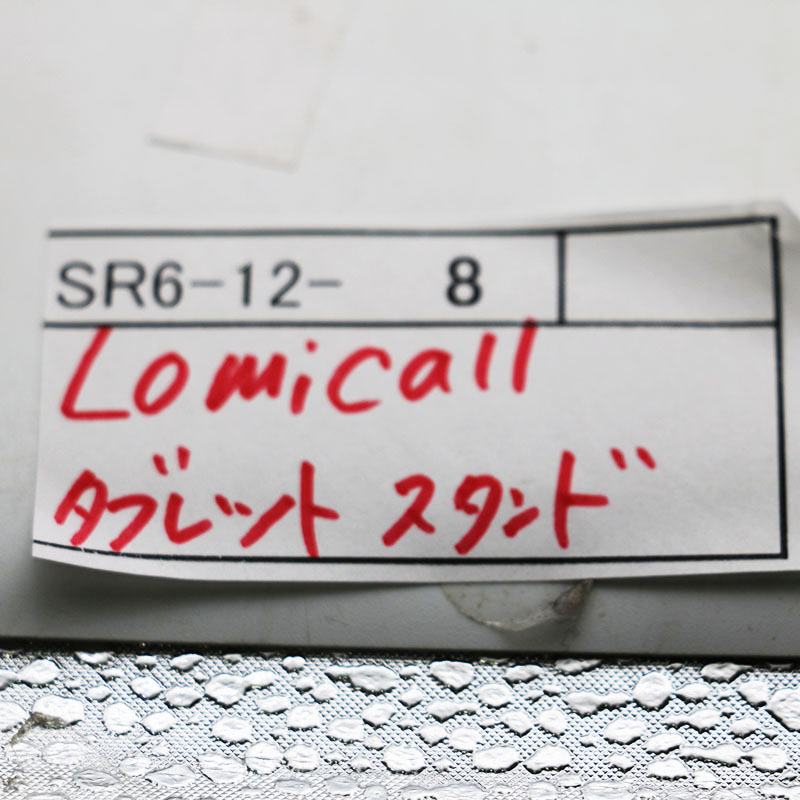 SR6-12- 8
Lomicall
タブレット スタンド